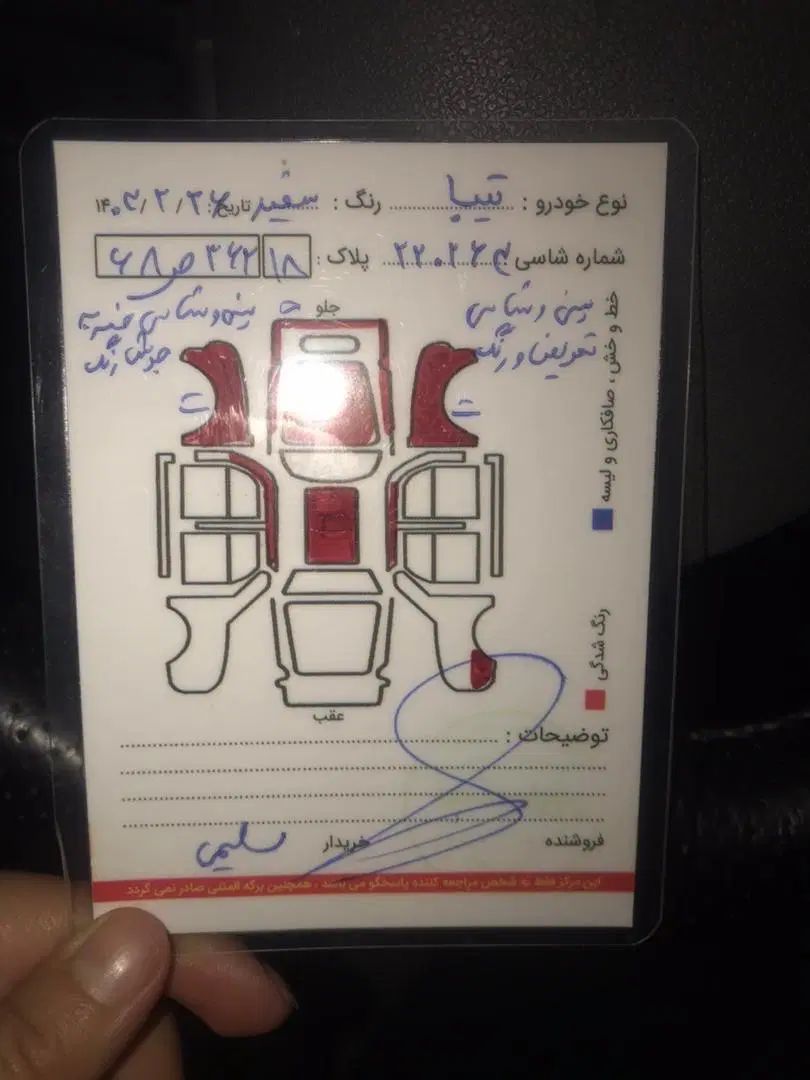 نوع خودرو : تیبا رنگ : سفید تاریخ: ۱۴۰۳/۲/۲۶
شماره شاسی پلاک : ۱۸ ۳۶۲ ص ۶۸
جلو
سینی و شاسی
تعویض و رنگ
سینی و شاسی
رنگ
ت
ت
خط و خش ، صافکاری و لیسه
رنگ شدگی
عقب
توضیحات :
فروشنده
خریدار سلیمی
این مرکز فقط به شخص مراجعه کننده پاسخگو می باشد ، همچنین برگه المثنی صادر نمی گردد